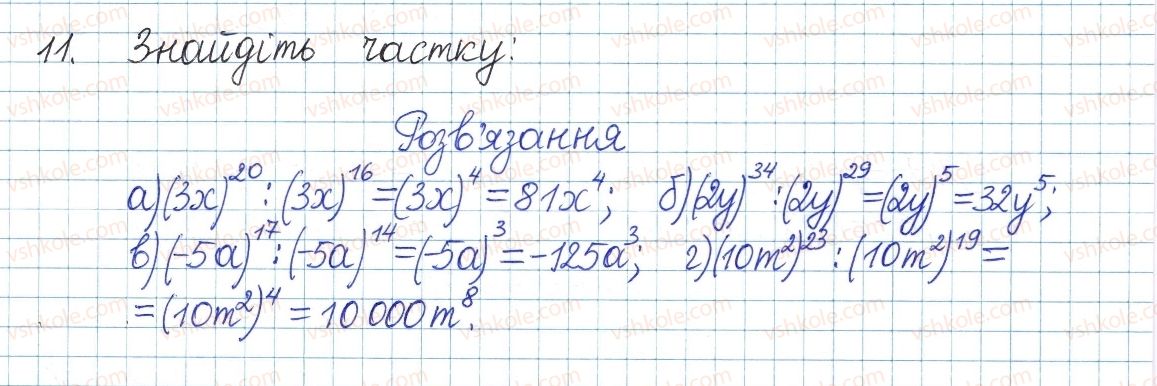 11. Знайдіть частку:
Розв'язання
а) (3x)²⁰ : (3x)¹⁶ = (3x)⁴ = 81x⁴; б) (2y)³⁴ : (2y)²⁹ = (2y)⁵ = 32y⁵;
в) (-5a)¹⁷ : (-5a)¹⁴ = (-5a)³ = -125a³; г) (10m²)²³ : (10m²)¹⁹ =
= (10m²)⁴ = 10 000m⁸.